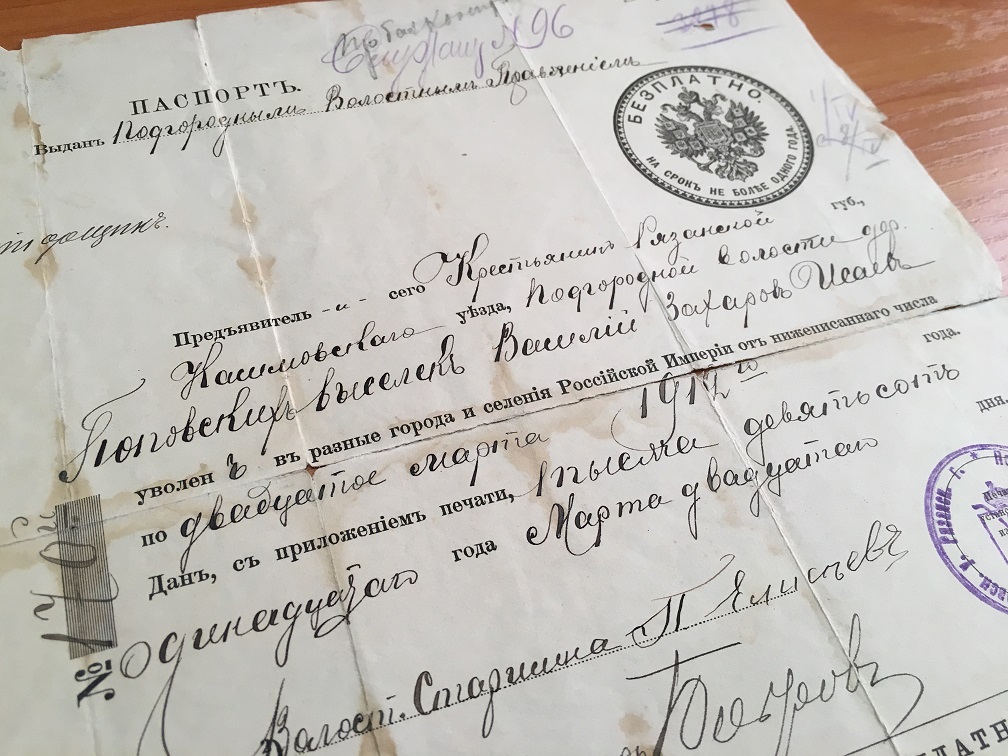 № 96
ПАСПОРТЪ.
Выданъ Подгороднымъ Волостнымъ Правленіемъ
БЕЗПЛАТНО.
НА СРОКЪ НЕ БОЛѢЕ ОДНОГО ГОДА.
Предъявитель - и - сего Крестьянинъ Рязанской губ.,
Касимовскаго уѣзда, Подгородной волости дер.
Поповскихъ выселокъ Василій Захаровъ Исаевъ
уволен ъ въ разные города и селенія Россійской Имперіи отъ нижеписаннаго числа
по двадцатое марта 1912 го года.
Данъ, съ приложеніемъ печати, тысяча девятьсотъ
Одинадцатаго года Марта двадцатаго дня.
№ 170
Волост. Старшина П Елисѣевъ